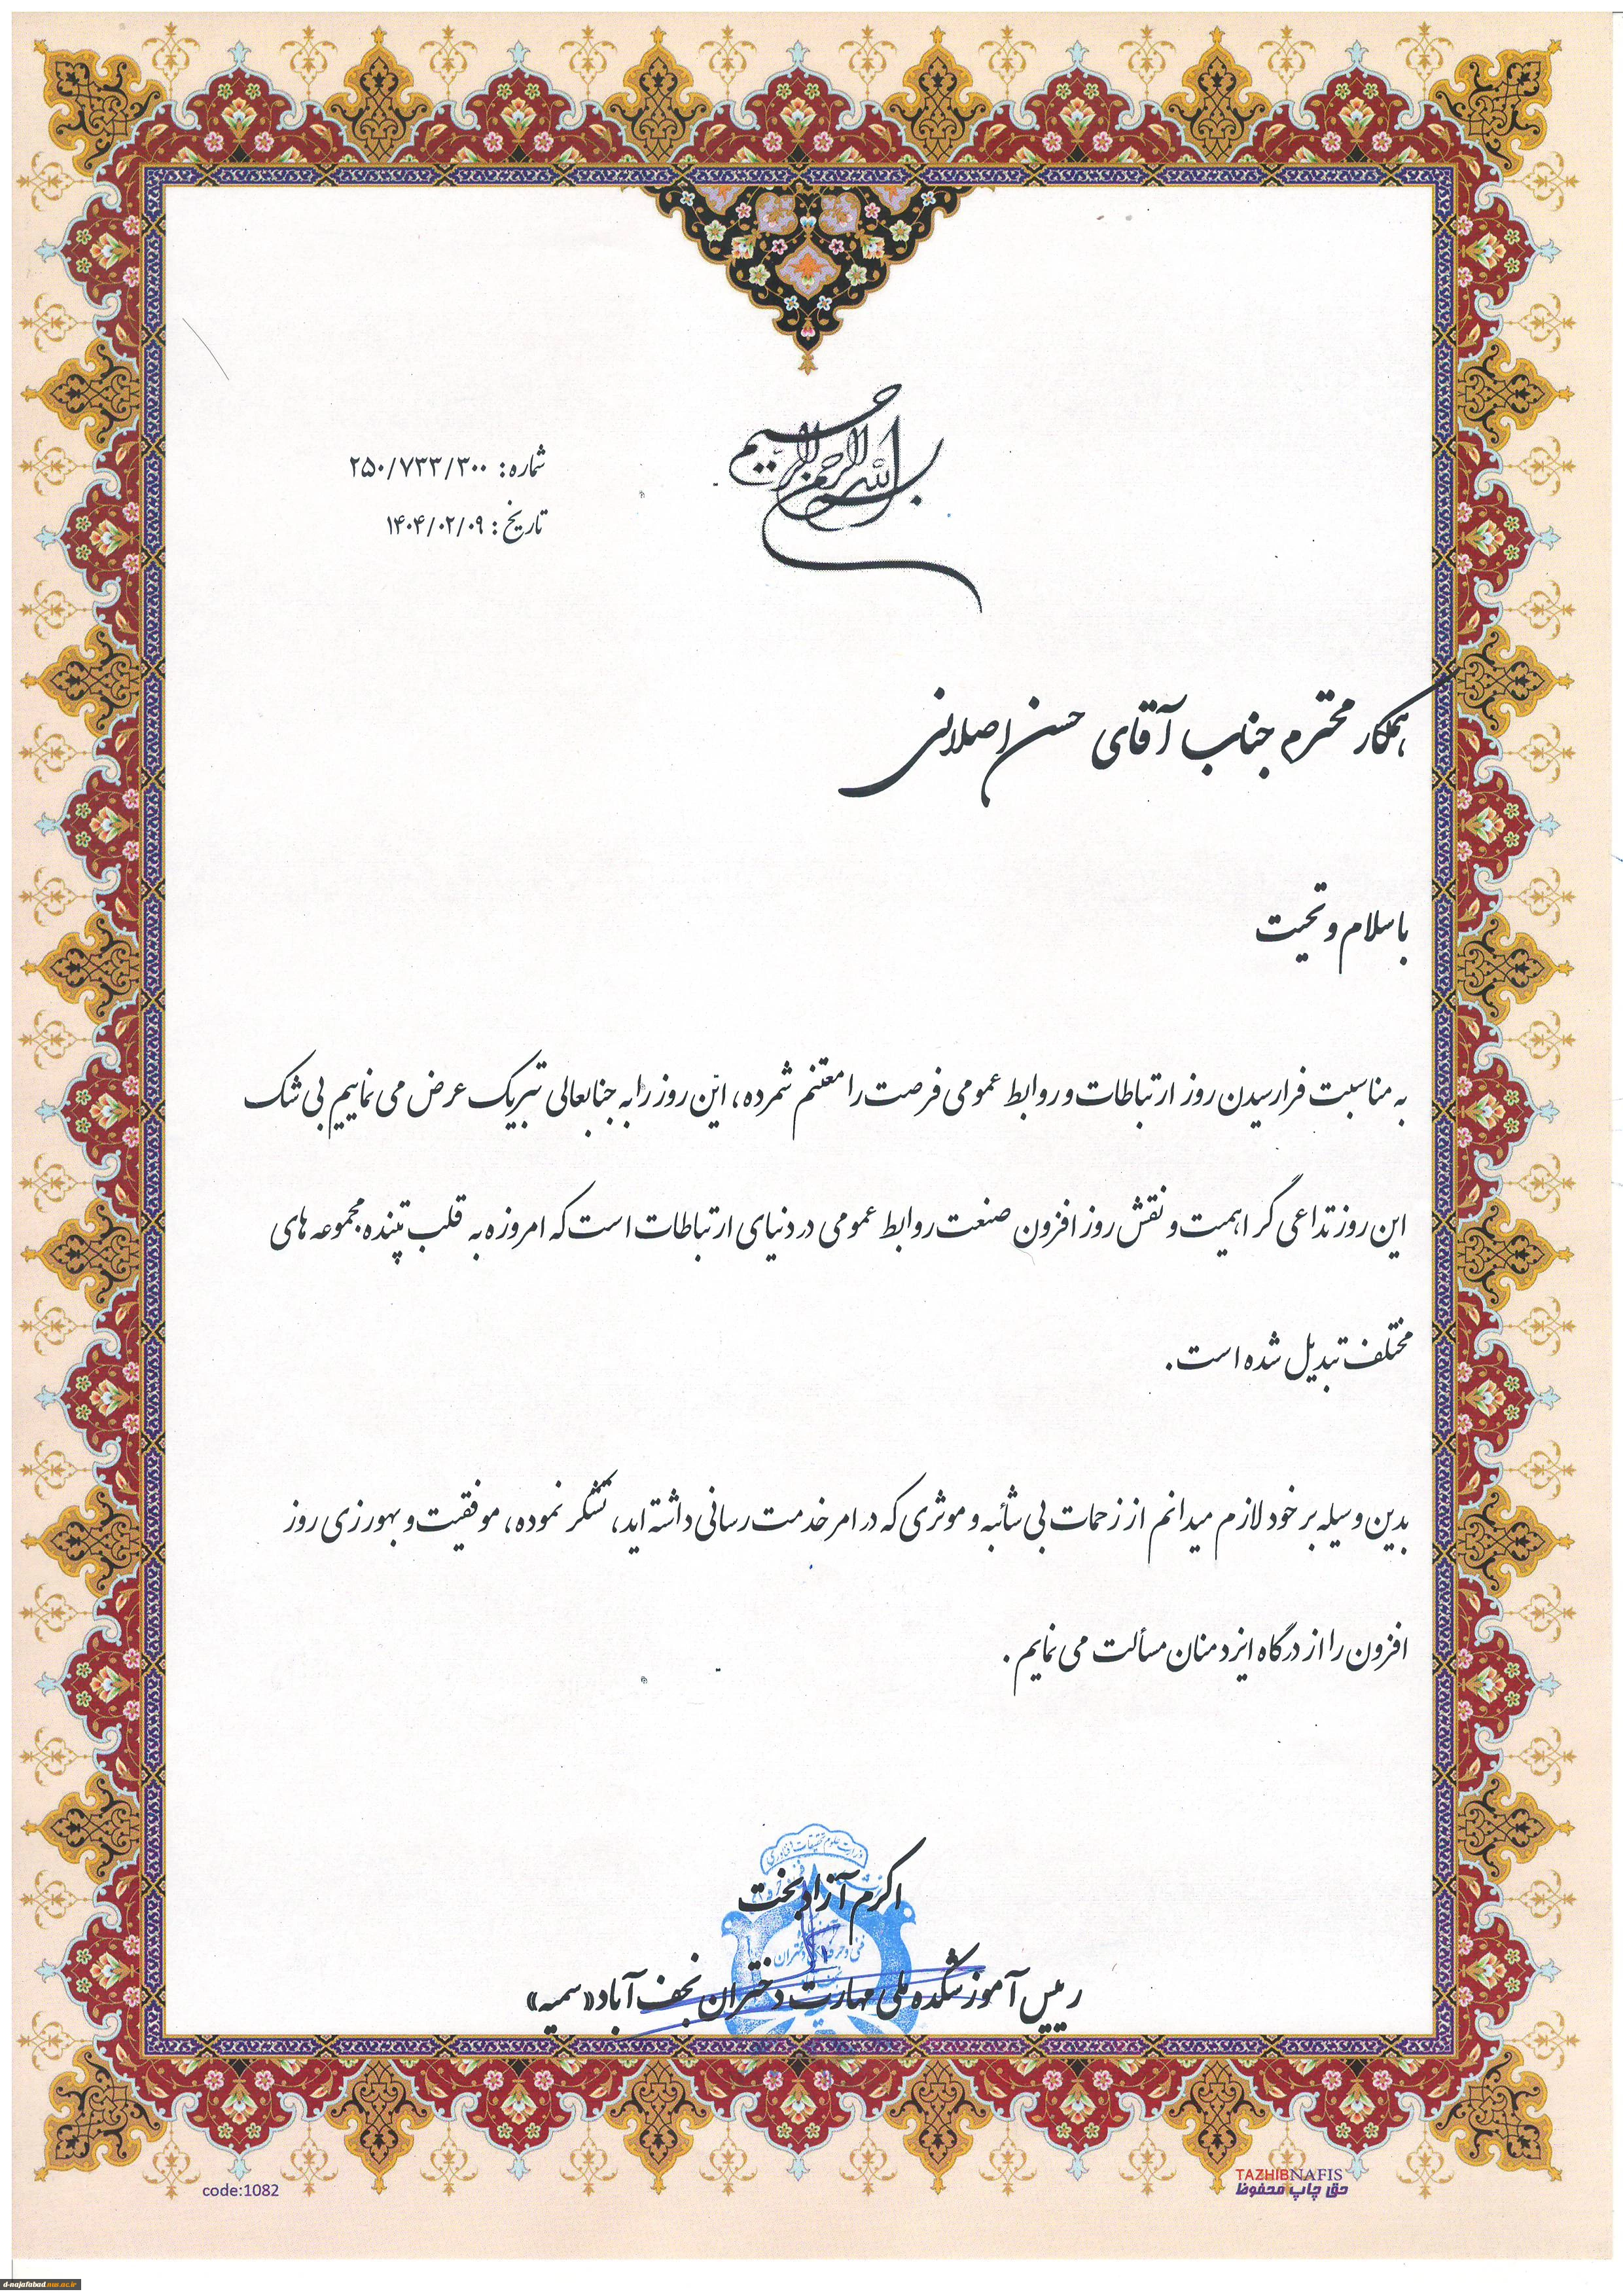 بسم الله الرحمن الرحیم
شماره: ۲۵۰/۷۳۳/۳۰۰
تاریخ: ۱۴۰۴/۰۲/۰۹
همکار محترم جناب آقای حسن اصلانی
با سلام و تحیت
به مناسبت فرارسیدن روز ارتباطات و روابط عمومی فرصت را مغتنم شمرده، این روز را به جنابعالی تبریک عرض می نماییم بی شک
این روز تداعی گر اهمیت و نقش روز افزون صنعت روابط عمومی در دنیای ارتباطات است که امروزه به قلب تپنده مجموعه های
مختلف تبدیل شده است.
بدین وسیله بر خود لازم میدانم از زحمات بی شائبه و موثری که در امر خدمت رسانی داشته اید، تشکر نموده، موفقیت و بهورزی روز
افزون را از درگاه ایزد منان مسألت می نمایم.
وزارت علوم تحقیقات و فناوری
اکرم آزادبخت
فنی و حرفه ای دختران
رییس آموزشکده ملی مهارت دختران نجف آباد «سمیه»
code:1082
TAZHIBNAFIS
حق چاپ محفوظ
d-najafabad.nus.ac.ir